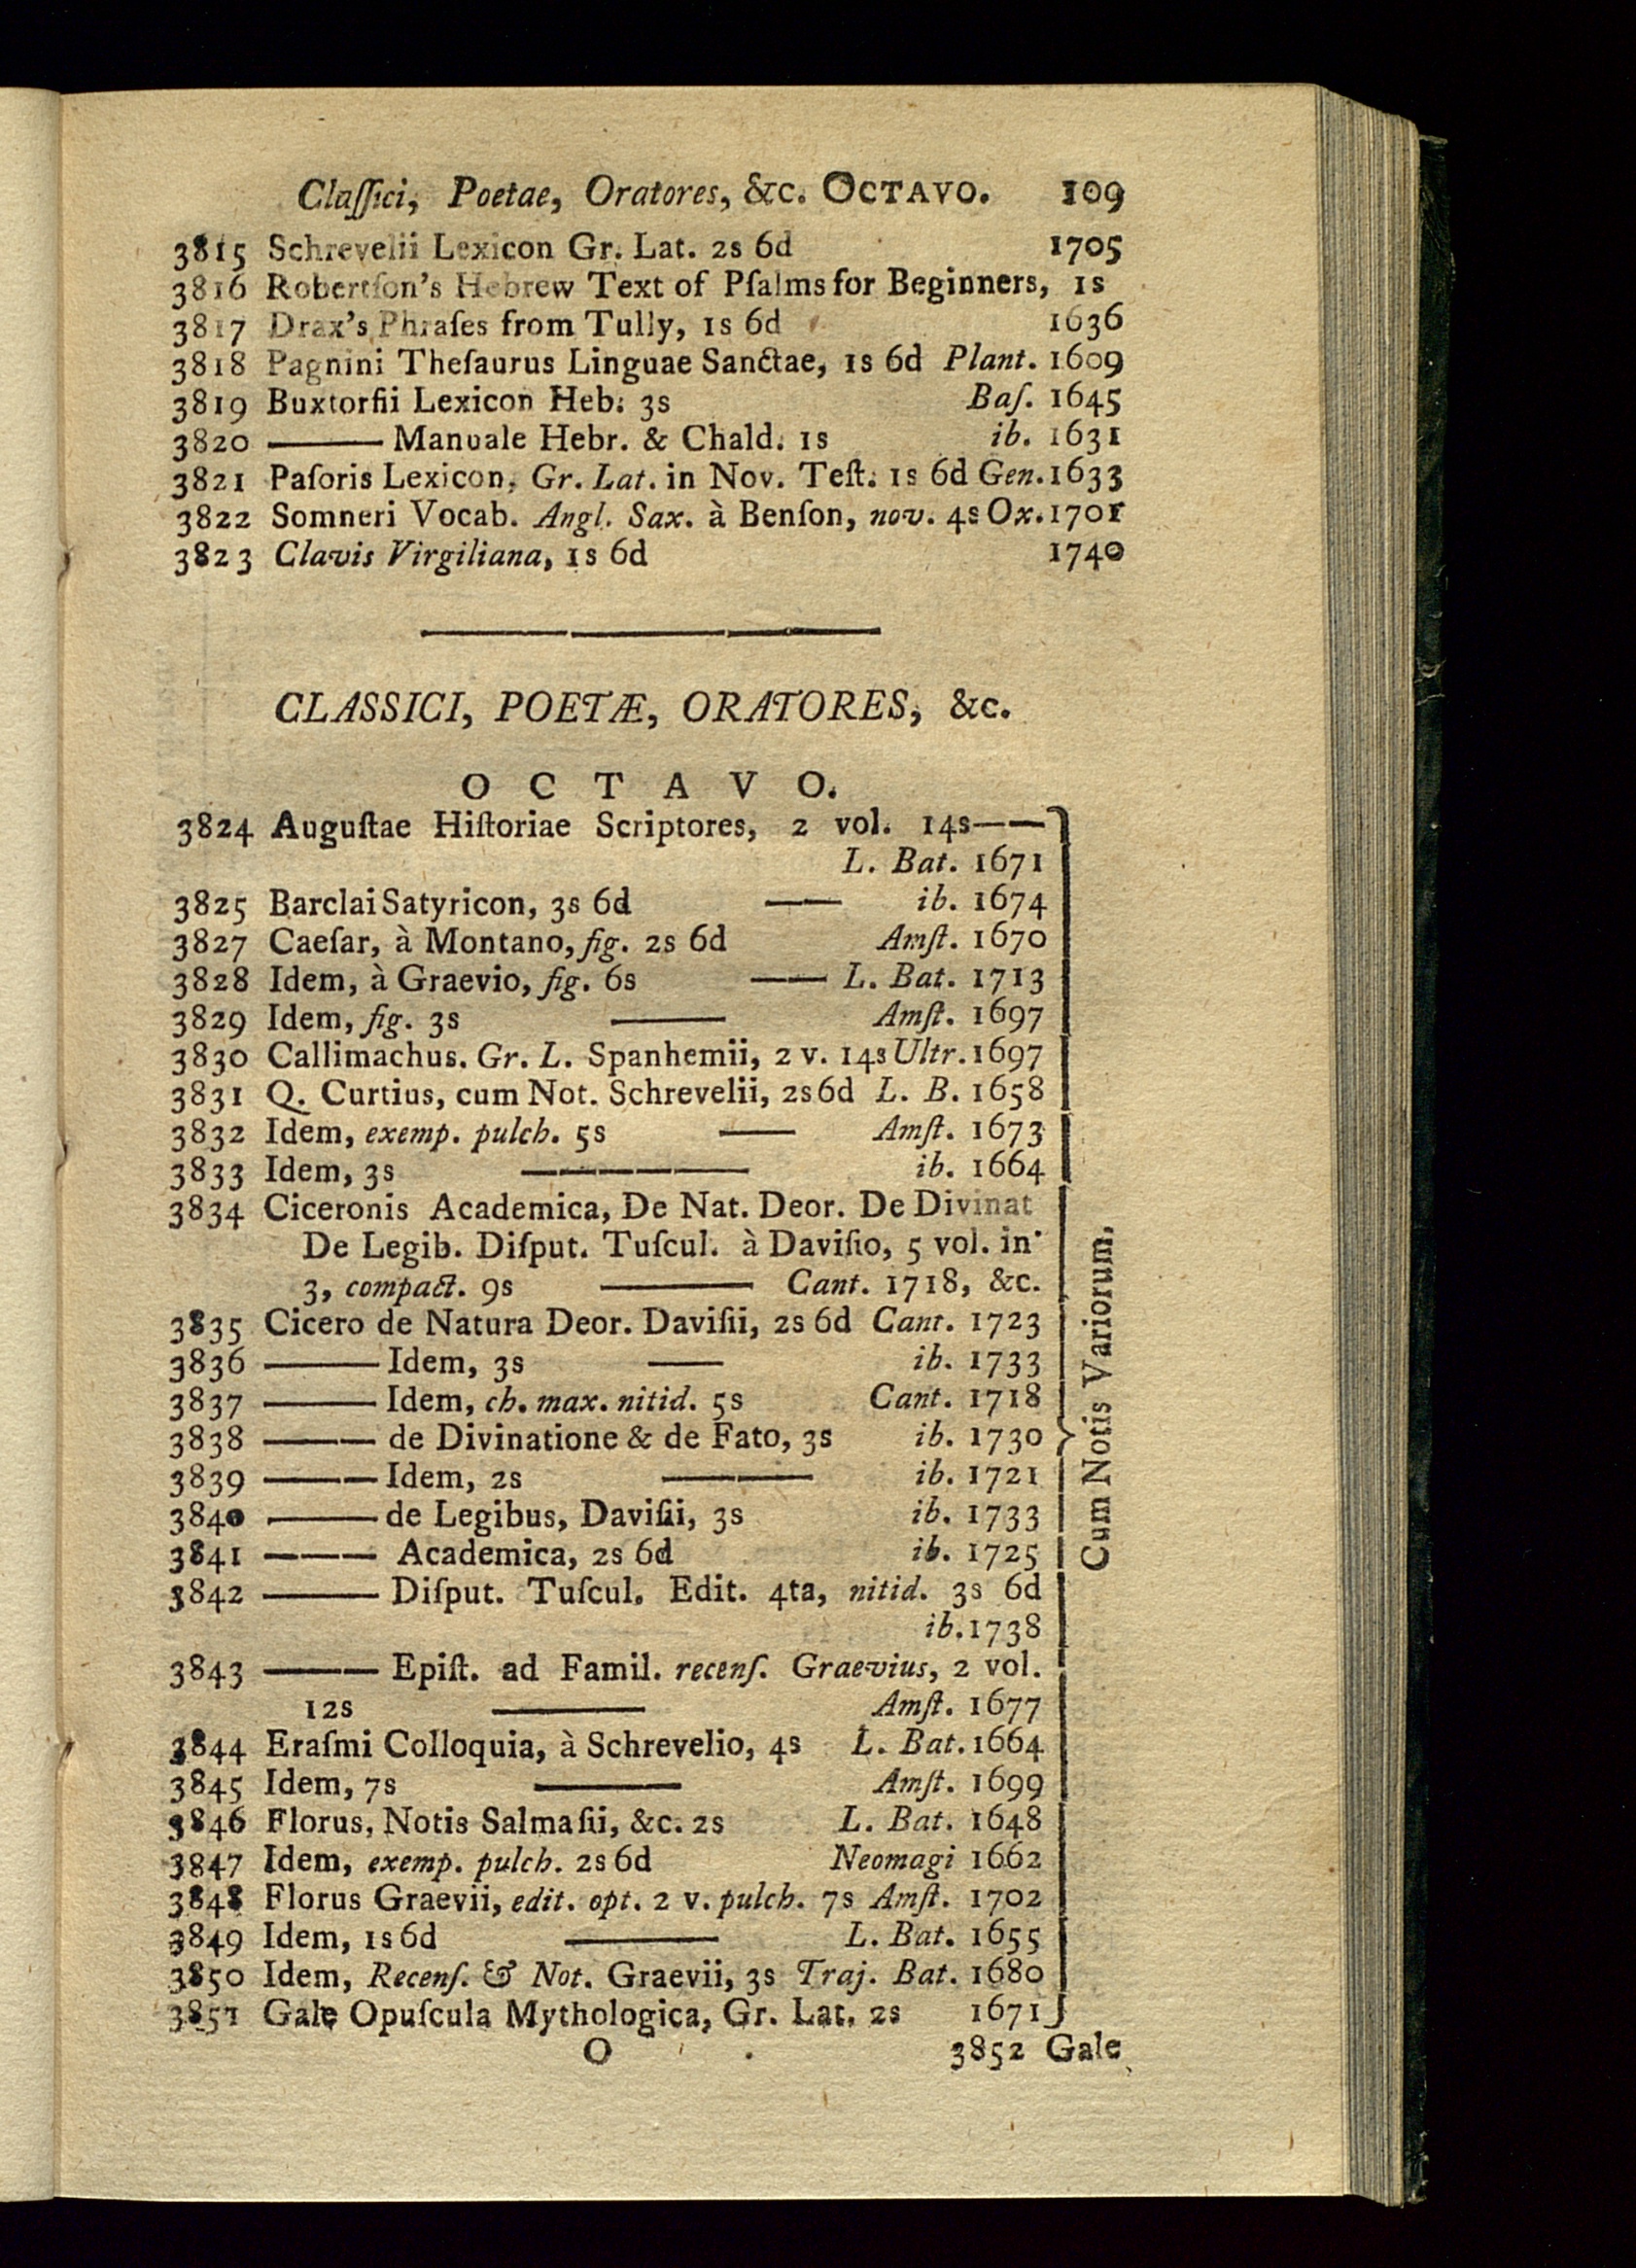 Claſſici, Poetae, Oratores, &c. OCTAVO. 109
3815 Schrevelii Lexicon Gr. Lat. 2s 6d 1705
3816 Robertſon's Hebrew Text of Pſalms for Beginners, 1s
3817 Drax's Phraſes from Tully, 1s 6d 1636
3818 Pagnini Theſaurus Linguae Sanctae, 1s 6d Plant. 1609
3819 Buxtorfii Lexicon Heb. 3s Baſ. 1645
3820 ——— Manuale Hebr. & Chald. 1s ib. 1631
3821 Paſoris Lexicon, Gr. Lat. in Nov. Teſt. 1s 6d Gen. 1633
3822 Somneri Vocab. Angl. Sax. à Benſon, nov. 4s Ox. 1701
3823 Clavis Virgiliana, 1s 6d 1740
CLASSICI, POETÆ, ORATORES, &c.
OCTAVO.
3824 Auguſtae Hiſtoriae Scriptores, 2 vol. 14s——
L. Bat. 1671
3825 Barclai Satyricon, 3s 6d —— ib. 1674
3827 Caeſar, à Montano, fig. 2s 6d Amſt. 1670
3828 Idem, à Graevio, fig. 6s —— L. Bat. 1713
3829 Idem, fig. 3s ——— Amſt. 1697
3830 Callimachus. Gr. L. Spanhemii, 2 v. 14s Ultr. 1697
3831 Q. Curtius, cum Not. Schrevelii, 2s 6d L. B. 1658
3832 Idem, exemp. pulch. 5s —— Amſt. 1673
3833 Idem, 3s —————— ib. 1664
3834 Ciceronis Academica, De Nat. Deor. De Divinat
De Legib. Diſput. Tuſcul. à Daviſio, 5 vol. in
3, compact. 9s ———— Cant. 1718, &c.
3835 Cicero de Natura Deor. Daviſii, 2s 6d Cant. 1723
3836 ——— Idem, 3s —— ib. 1733
3837 ——— Idem, ch. max. nitid. 5s Cant. 1718
3838 ——— de Divinatione & de Fato, 3s ib. 1730
3839 ——— Idem, 2s ———— ib. 1721
3840 ——— de Legibus, Daviſii, 3s ib. 1733
3841 ——— Academica, 2s 6d ib. 1725
3842 ——— Diſput. Tuſcul. Edit. 4ta, nitid. 3s 6d
ib. 1738
3843 ——— Epiſt. ad Famil. recenſ. Graevius, 2 vol.
12s ———— Amſt. 1677
3844 Eraſmi Colloquia, à Schrevelio, 4s L. Bat. 1664
3845 Idem, 7s ———— Amſt. 1699
3846 Florus, Notis Salmaſii, &c. 2s L. Bat. 1648
3847 Idem, exemp. pulch. 2s 6d Neomagi 1662
3848 Florus Graevii, edit. opt. 2 v. pulch. 7s Amſt. 1702
3849 Idem, 1s 6d ———— L. Bat. 1655
3850 Idem, Recenſ. & Not. Graevii, 3s Traj. Bat. 1680
3851 Gale Opuſcula Mythologica, Gr. Lat. 2s 1671
Cum Notis Variorum,
O 3852 Gale